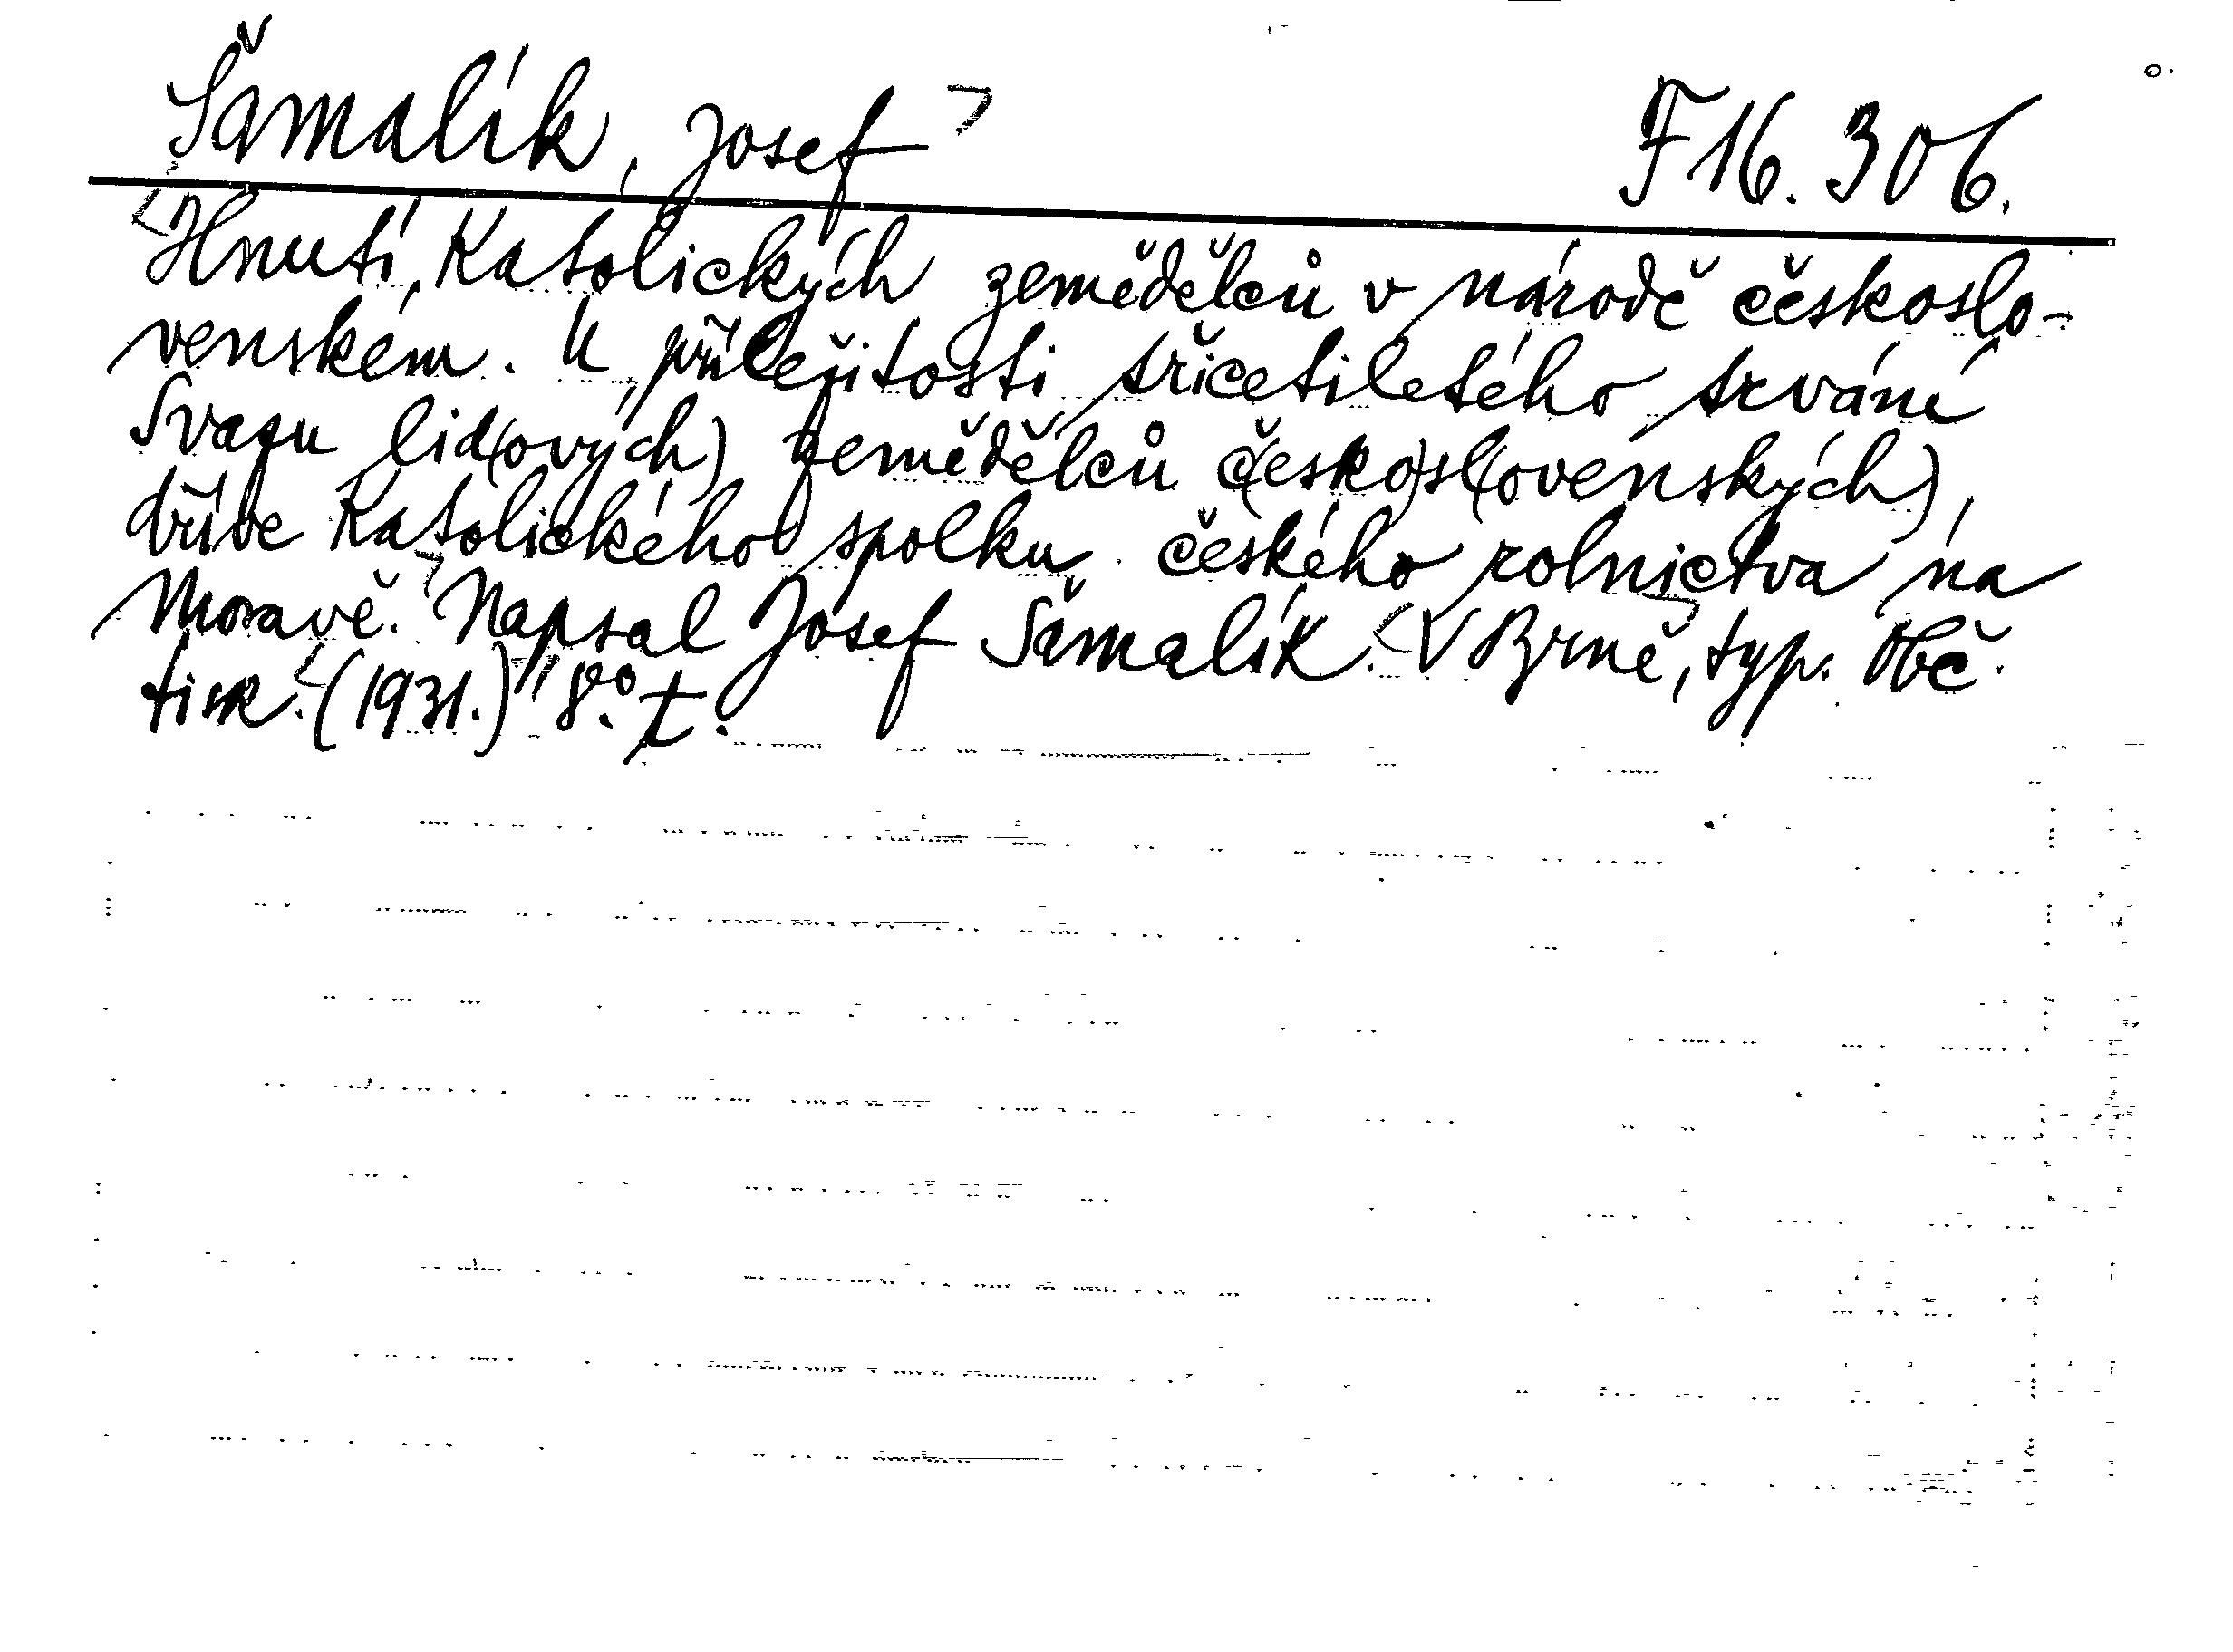 Šamalík, Josef
F 16.306.
Hnutí katolických zemědělců v národě českoslo-
venském. K příležitosti třicetiletého trvání
Svazu lid(ových) zemědělců č(esko)sl(ovenských),
dříve Katolického spolku českého rolnictva na
Moravě. Napsal Josef Šamalík. V Brně, typ. Obč.
tisk. (1931.) 8°. t.